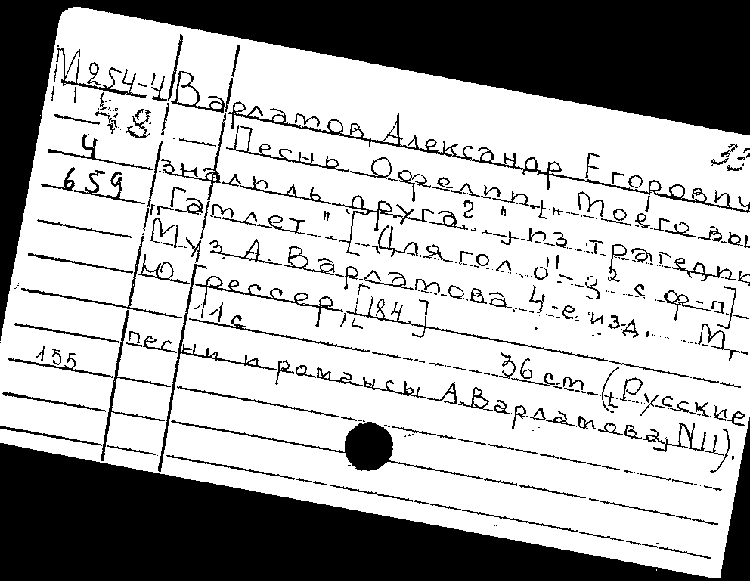 М 254-4 Варламов, Александр Егорович
48 Песнь Офелии „Моего вы 33
4 знали ль друга?", из трагедии
659 „Гамлет" [Для гол. d¹-g² с ф-п]
Муз. А. Варламова. 4-е изд. М,
Ю Грессер, [184 ]
11с 36 cm (Русские
155 песни и романсы А.Варламова, N11).